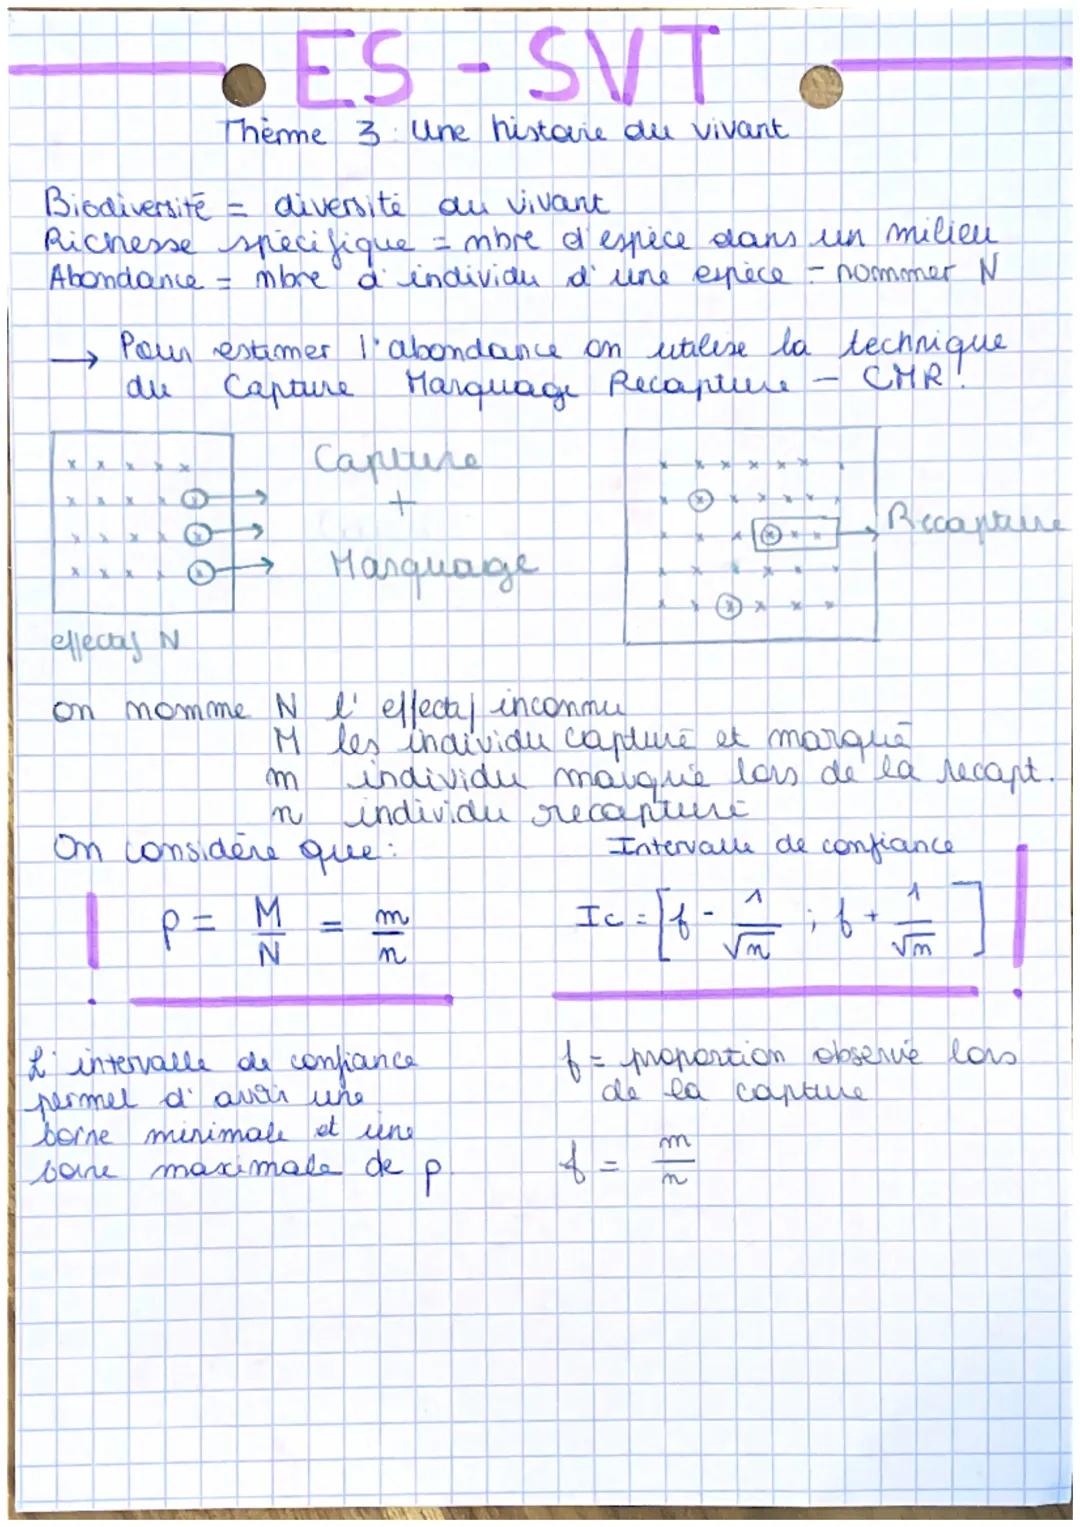 ES - SVT
Thème 3 : Une histoire du vivant
Biodiversité = diversité du vivant
Richesse spécifique = nbre d'espèce dans un milieu
Abondance = nbre d'individu d'une espèce - nommer N
→ Pour estimer l'abondance on utilise la technique
du Capture Marquage Recapture - CMR !
Capture
+
Marquage
Recapture
effectif N
on nomme N l'effectif inconnu
M les individu capturé et marqué
m individu marqué lors de la recapt.
n individu recapturé
On considère que :
Intervalle de confiance
! p = M/N = m/n
Ic = [f - 1/√n ; f + 1/√n] !
L'intervalle de confiance
permet d'avoir une
borne minimale et une
borne maximale de p.
f = proportion observé lors
de la capture
f = m/n